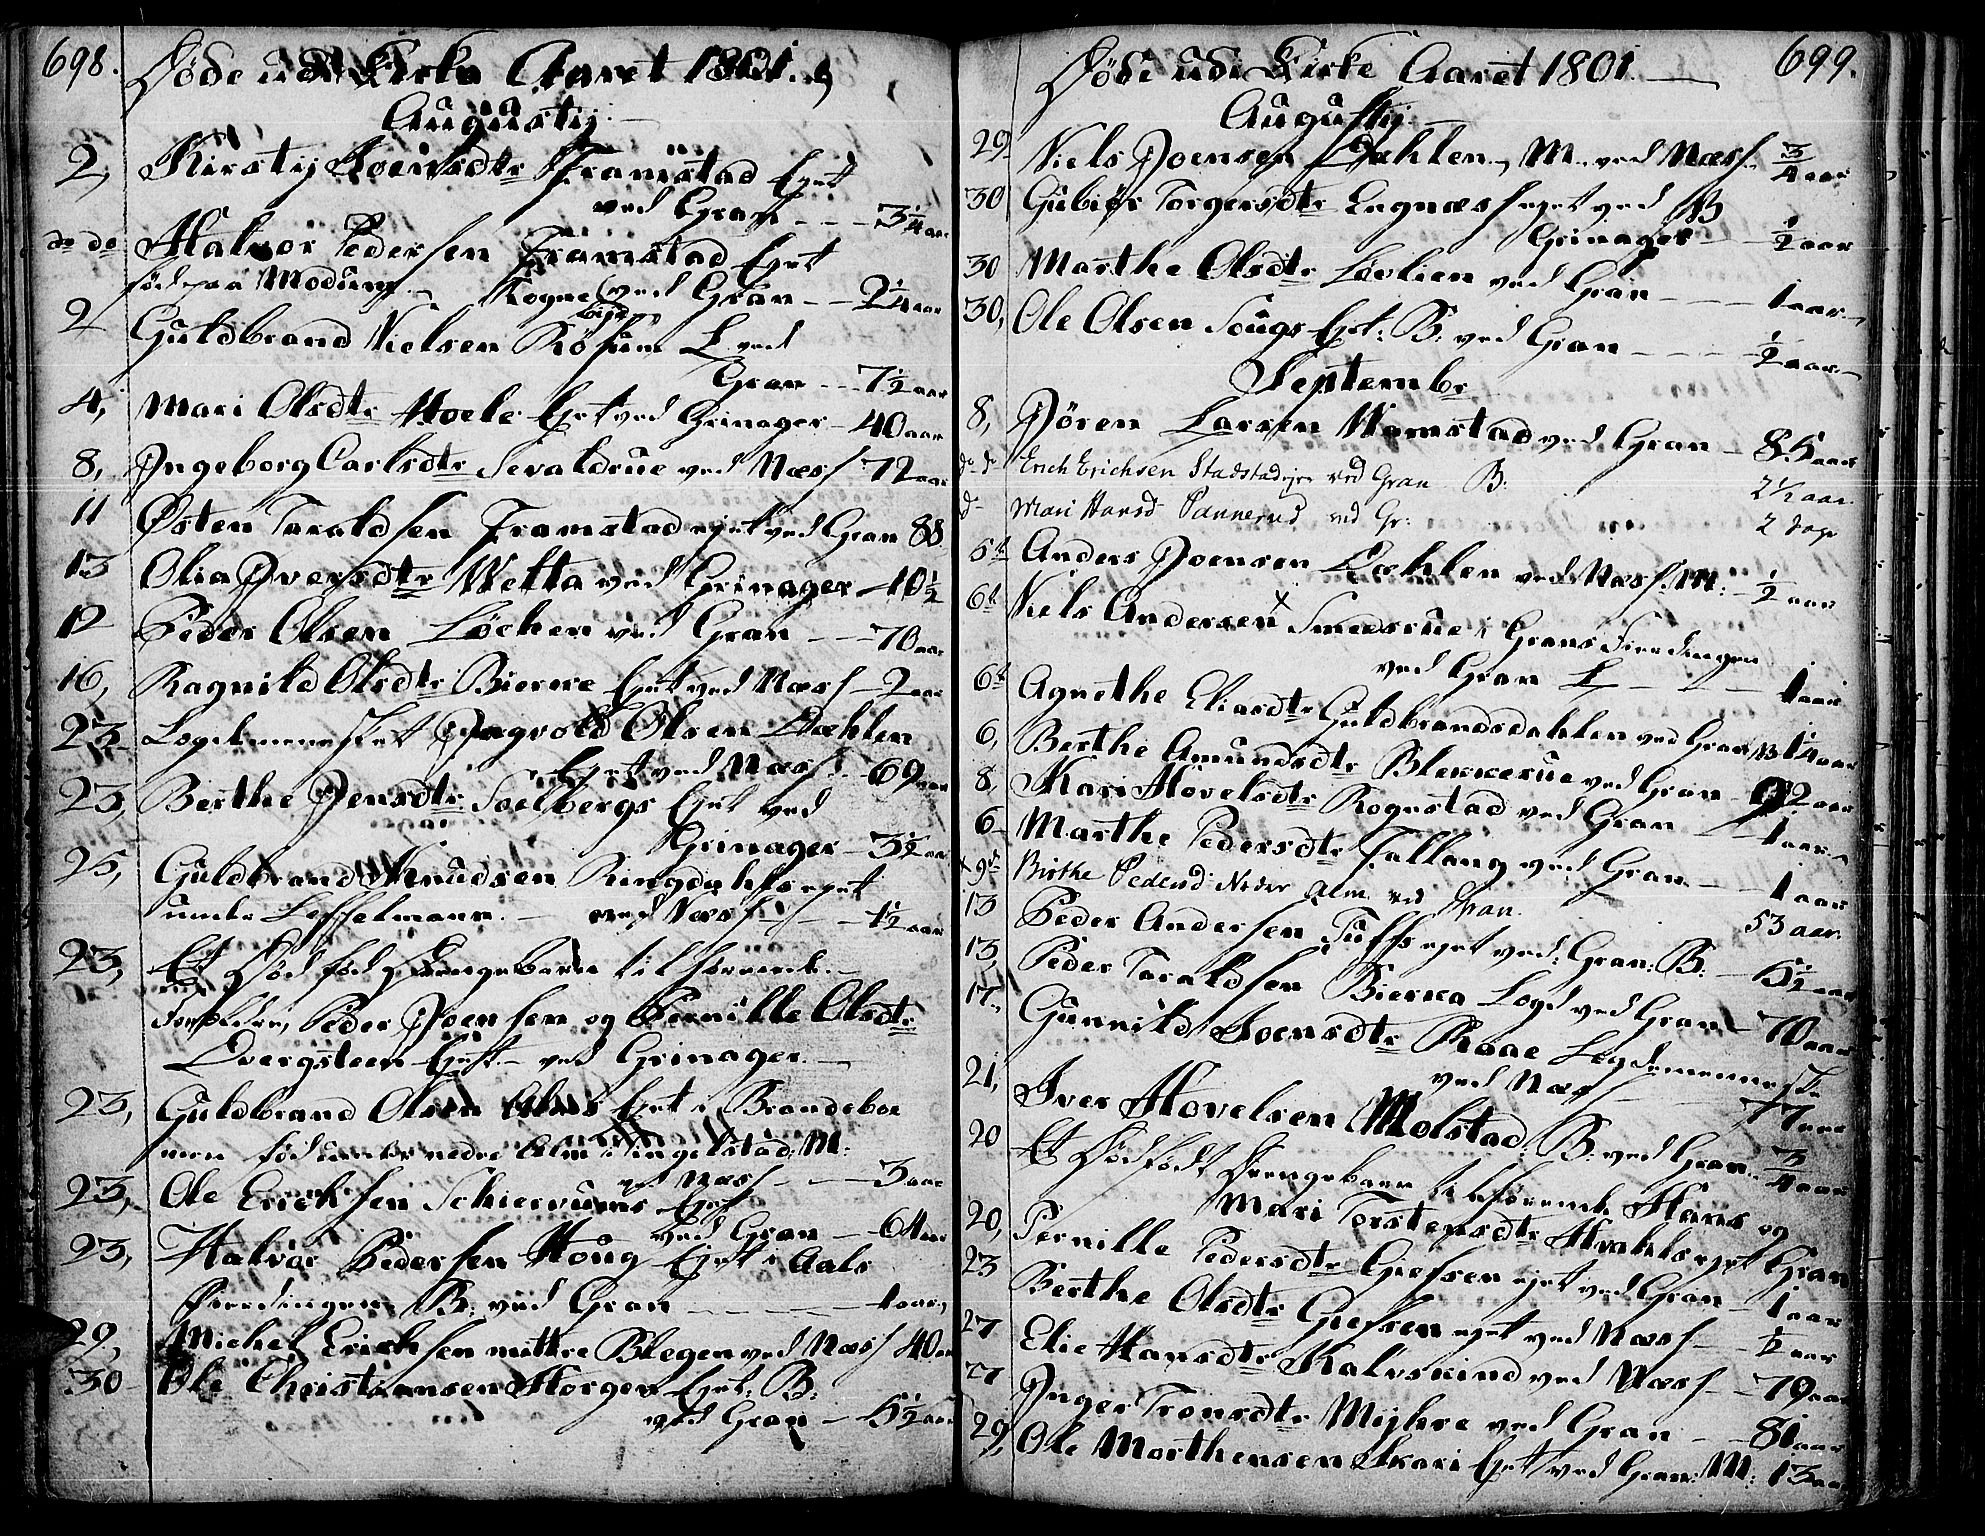 698.
Døde udi Kirke Aaret 1801.
Augustij.
2, Kirstij Joensdtr Framstad Eyet
ved Gran - - - 3 1/4 aar
do do Halvor Pedersen Framstad Eyet
fød paa Modum. Sogne (ved Gran - - 2 1/4 aar
2 Guldbrand Nielsen Røsum L. ved
Gran - - 7 1/2 aar
4, Mari Olsdtr Hoele Eyet ved Grinager - 40 aar
8, Ingeborg Carlsdtr Sevaldrue ved Næss 72 aar
11 Østen Taraldsen Framstad eyet ved Gran 88
13 Olia Iversdtr Wetta ved Grinager - 10 1/2
12 Peder Olsen Løchen ved Gran - - - 70 aar
16, Ragnild Olsdtr Bierke Eyet ved Næss - 2 aar
23 Logdemennesket Ingvold Olsen Dæhlen
Eyet ved Næss - 69 aar
23, Berthe Jensdtr Soelbergs Eyet ved
Grinager - 3 1/2 aar
25, Guldbrand Knudsen Ringdahls eyet
ved Næss - - 1 1/2 aar
23, Et Død fød Drengebarn tilhørende
Forældre, Peder Joensen og Pernille Olsdtr
Dvergsteen Eyet - ved Grinager
23, Guldbrand Olsen Alms Eyet i Brandeboe
fød under nedre Alm i Tingelstad: M:
ved Næss - - - 3 aar
23, Ole Erichsen Schiervums Eyet
ved Gran - 64 aar
23, Halvor Pedersen Houg Eyet i Aals
Fierdingen B: ved Gran - - - 1 aar,
29, Michel Erichsen mittre Blegen ved Næss 40 aar
30 Ole Christiansen Horgen Eyet: B:
ved Gran - 5 1/2 aar
699.
Døde udi Kirke Aaret 1801.
Augustij.
29 Niels Joensen Dæhlen, M. ved Næss. 3/4 aar
30 Gubiør Torgersdtr Legnæss eyet ved B
Grinager - - 1/2 aar
30 Marthe Olsdtr Løvlien ved Gran - - - 1 aar
30, Ole Olsen Sougs Eyet: B: ved Gran - - - - 1/2 aar
Septembr
8, Sören Larsen Wamstad ved Gran - 85 aar
do do Erich Erichsen Stadstadeye ved Gran B: 2 1/2 aar.
d- Mari Hansd Pannerud ved Gr: 2 dage
5t Anders Joensen Dæhlen ved Næss. M: - 1/2 aar
6t Niels Andersen Smedsrue i Grans Fierdingen
ved Gran L - - - 1 aar
6t Agnethe Eliasdtr Guldbrandsdahlen ved Gran B 14 aar
6, Berthe Amundsdtr Blekkerue ved Gran 92 aar
8, Kari Hovelsdtr Rognstad ved Gran - 1 aar
6 Marthe Pedersdtr Fallang ved Gran - - 1 aar
9d Birthe Pedersd Neder Alm ved Gran. 53 aar.
13 Peder Andersen Tuffs eyet ved: Gran: B: - 5 1/2 aar
13, Peder Taraldsen Bierka Logd ved Gran - 70 aar
17. Gunnild Joensdtr Raae Logdemenneske
ved Næss - - - 77 aar
21, Iver Hovelsen Molstad: B: ved Gran - 3/4 aar
20 Et Død født Drengebarn tilhørende Hans og
Mari Torstensdtr Hvahls eyet Gran
20, Pernille Pedersdtr Grefsen eyet ved Gran - 1 aar
23 Berthe Olsdtr Grefsen eyet ved Næss - - 1/2 aar
27 Elie Hansdtr Kalvskind ved Næss - - 79 aar
27 Inger Tronsdtr Mijhre ved Gran - - 81 aar
29, Ole Morthensen Skari Eyet ved Gran: M: 13 aar